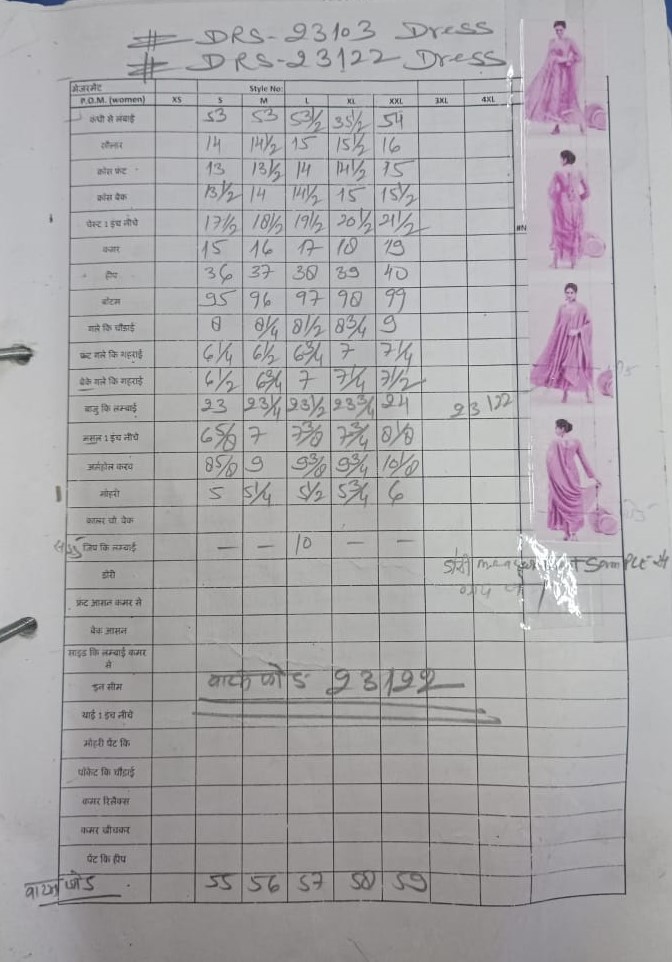 # DRS-23103 Dress
# DRS-23122 Dress
मेजरमेंट Style No:
P.O.M. (women) XS S M L XL XXL 3XL 4XL
कंधे से लंबाई 53 53 53 1/2 35 1/2 54
सोल्डर 14 14 1/2 15 15 1/2 16
क्रॉस फ्रंट 13 13 1/2 14 14 1/2 15
क्रॉस बैक 13 1/2 14 14 1/2 15 15 1/2
चेस्ट 1 इंच नीचे 17 1/2 18 1/2 19 1/2 20 1/2 21 1/2
कमर 15 16 17 18 19
हीप 36 37 38 39 40
बॉटम 95 96 97 98 99
गले कि चौड़ाई 8 8 1/4 8 1/2 8 3/4 9
फ्रंट गले कि गहराई 6 1/4 6 1/2 6 3/4 7 7 1/4
बेक गले कि गहराई 6 1/2 6 3/4 7 7 1/4 7 1/2
बाजु कि लम्बाई 23 23 1/4 23 1/2 23 3/4 24 23122
मसल 1 इंच नीचे 6 5/8 7 7 3/8 7 3/4 8 1/8
आर्महोल करव 8 5/8 9 9 3/8 9 3/4 10 1/8
मोहरी 5 5 1/4 5 1/2 5 3/4 6
कालर चौ. बेक
जिप कि लम्बाई — — 10 — —
डोरी measurement Sample से
फ्रंट आसन कमर से
बेक आसन
साइड कि लम्बाई कमर से
इन सीम 23122
थाई 1 इंच नीचे
मोहरी पेंट कि
पॉकेट कि चौड़ाई
कमर रिलैक्स
कमर खीचकर
पेंट कि हीप
55 56 57 58 59